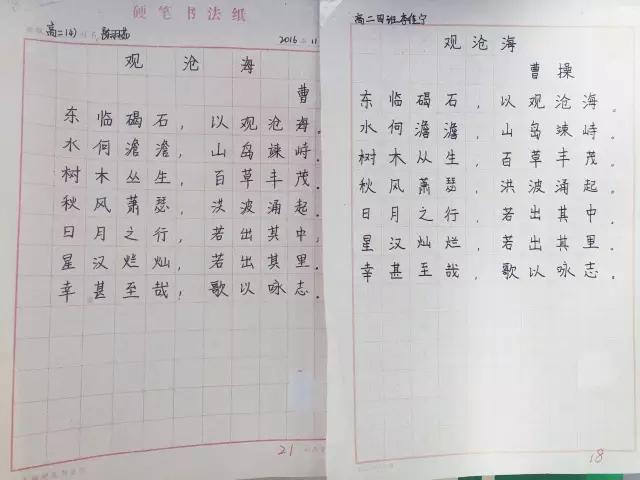 硬笔书法纸
高二(4)
2016 11
观沧海
曹
东临碣石，以观沧海。
水何澹澹，山岛竦峙。
树木丛生，百草丰茂。
秋风萧瑟，洪波涌起。
日月之行，若出其中，
星汉烂灿，若出其里。
幸甚至哉，歌以咏志。
21
高二四班李佳宁
观沧海
曹操
东临碣石，以观沧海。
水何澹澹，山岛竦峙。
树木从生，百草丰茂。
秋风萧瑟，洪波涌起。
日月之行，若出其中，
星汉灿烂，若出其里。
幸甚至哉，歌以咏志。
18